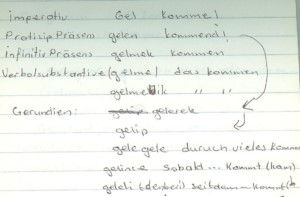 imperativ Gel komme!
Pratizip Präsens gelen kommend!
Infinitiv Präsens gelmek kommen
Verbalsubstantive (gelme) das kommen
gelmeklik " "
Gerundien: gelerek
gelip
gele gele duruch vieles komme
gelince sobalt... kommt (kam)
geleli (denberi) seitdem kommt